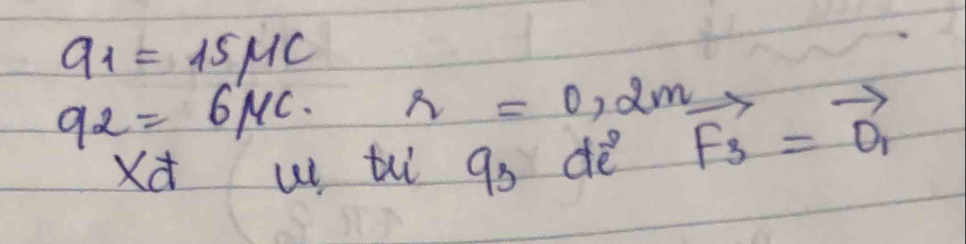 q1 = 15 μC
q2 = 6 μC. r = 0,2m
Xđ vị trí q3 để F⃗3 = 0⃗,